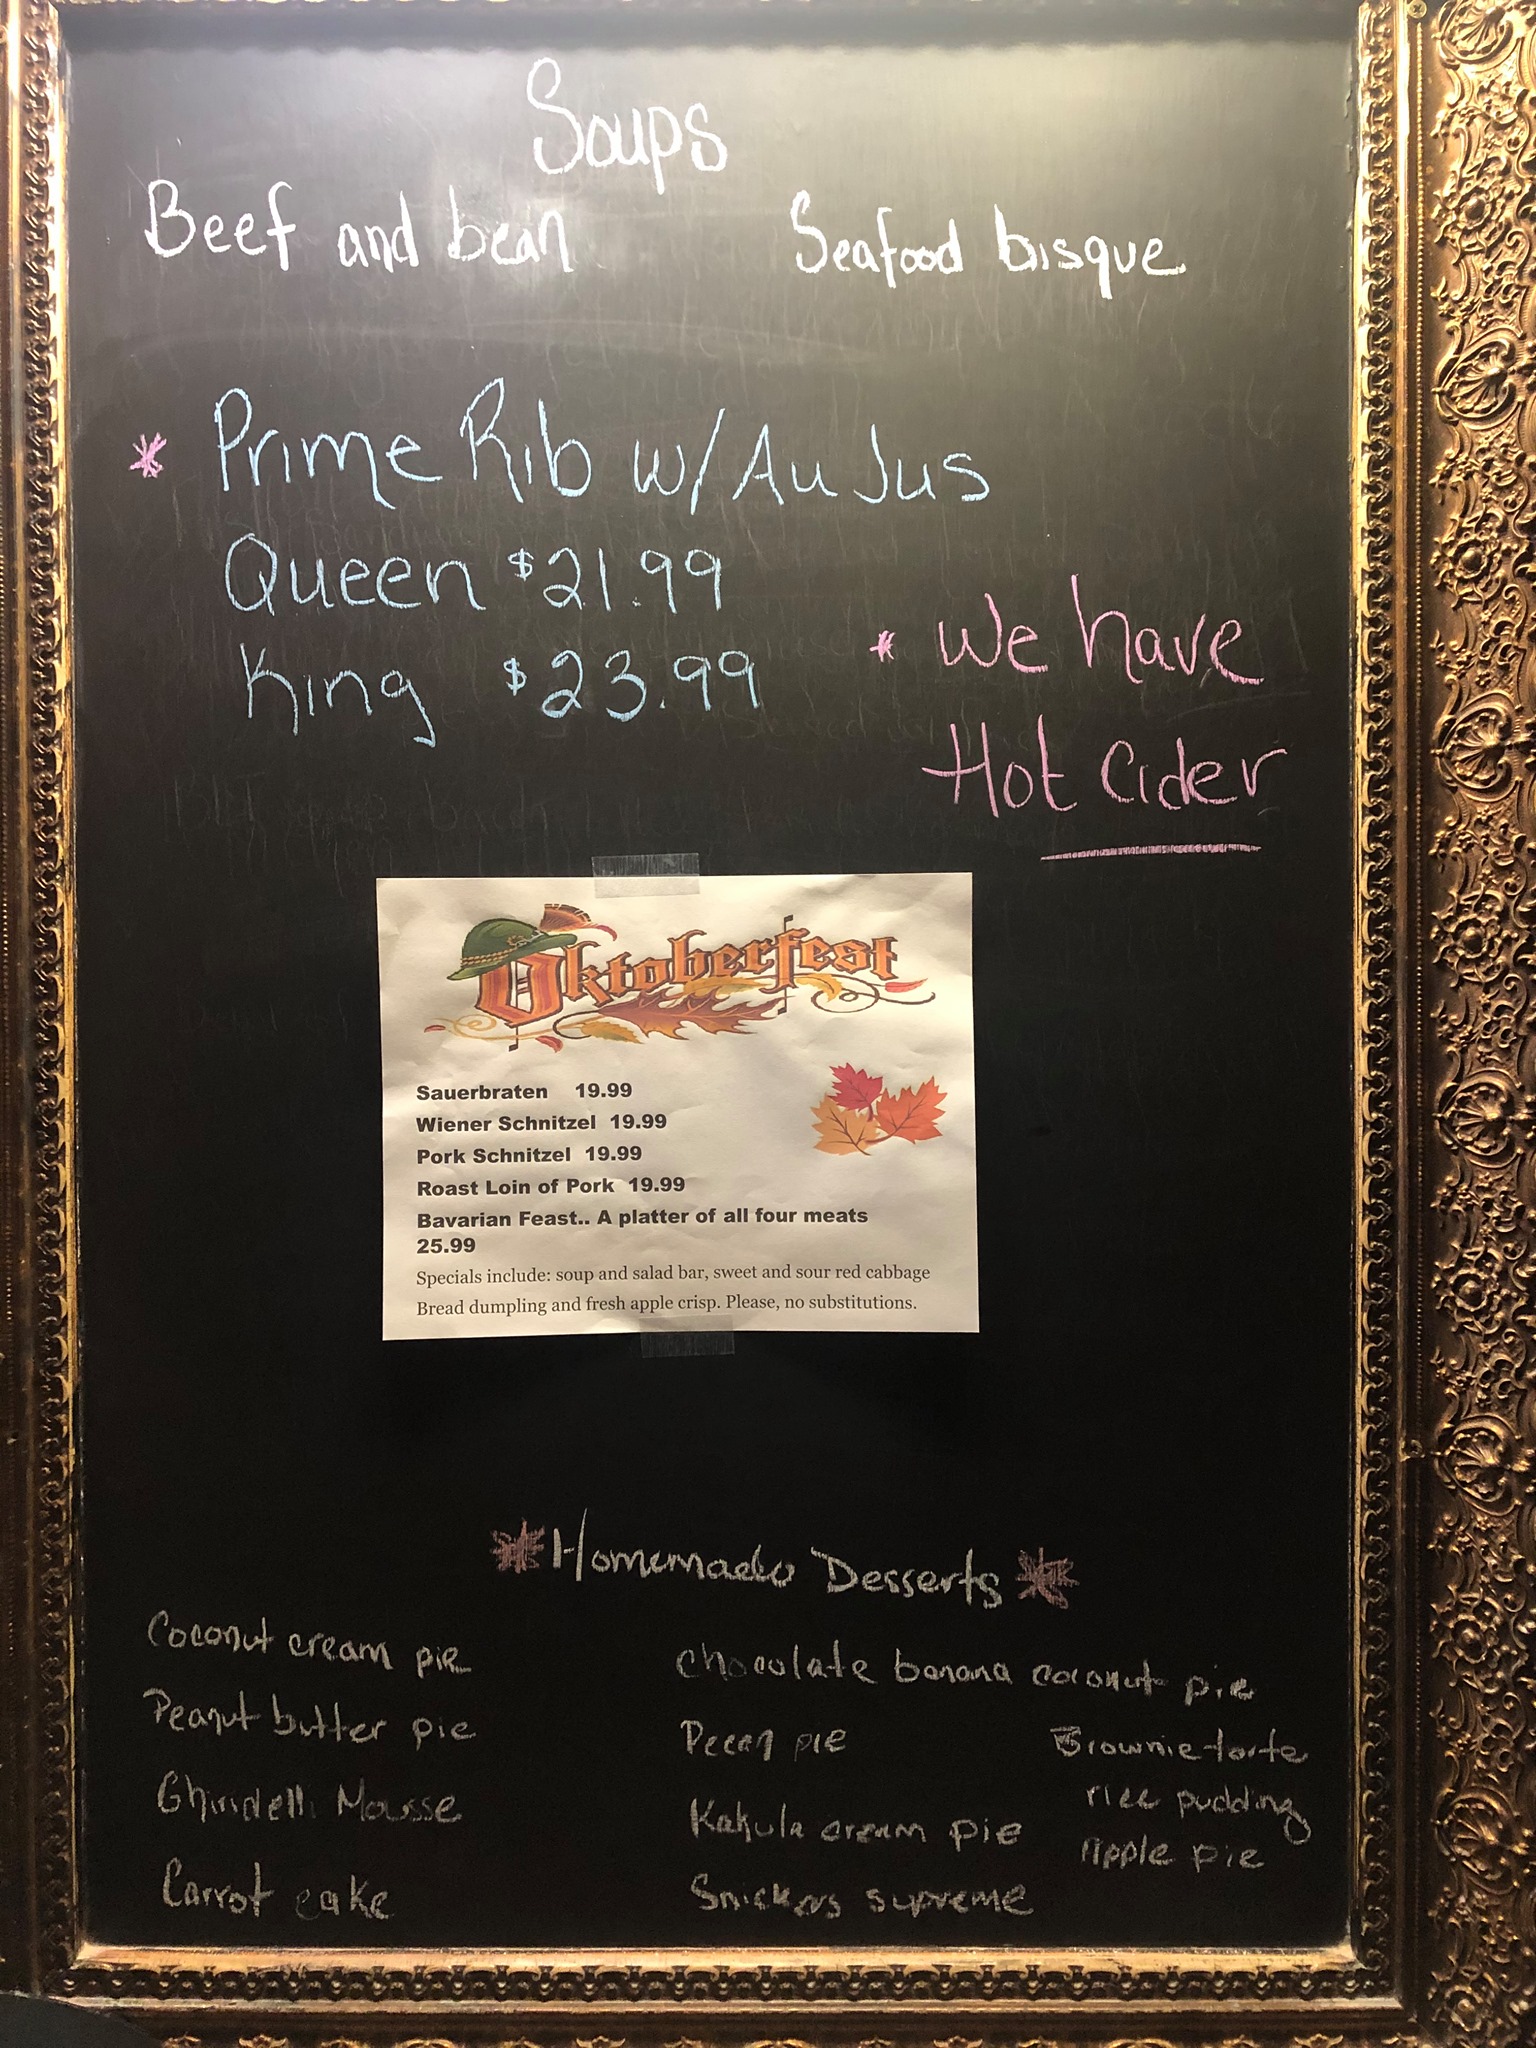 Soups
Beef and bean Seafood bisque
* Prime Rib w/ Au Jus
Queen $21.99
King $23.99
* We have
Hot Cider
Oktoberfest
Sauerbraten 19.99
Wiener Schnitzel 19.99
Pork Schnitzel 19.99
Roast Loin of Pork 19.99
Bavarian Feast.. A platter of all four meats
25.99
Specials include: soup and salad bar, sweet and sour red cabbage
Bread dumpling and fresh apple crisp. Please, no substitutions.
* Homemade Desserts *
Coconut cream pie
Peanut butter pie
Ghiridelli Mousse
Carrot cake
chocolate banana coconut pie
Pecan pie
Kahula cream pie
Snickers supreme
Brownie torte
rice pudding
apple pie